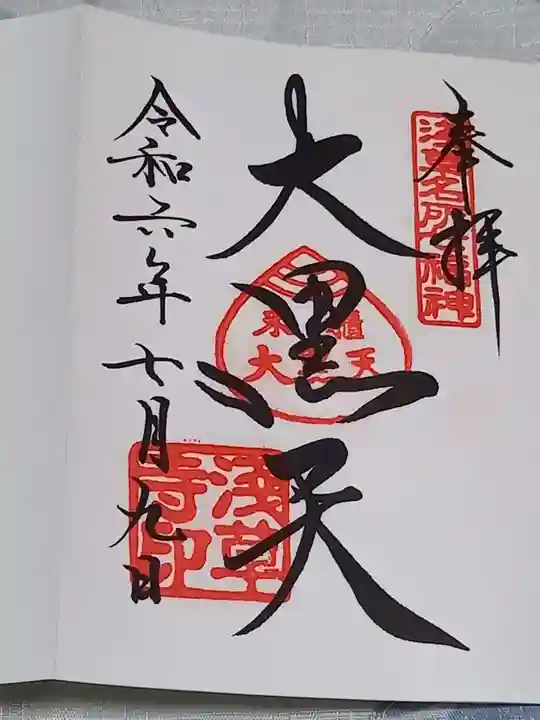 奉拝
浅草名所七福神
大黒天
米櫃
大黒天
浅草寺印
令和六年七月九日